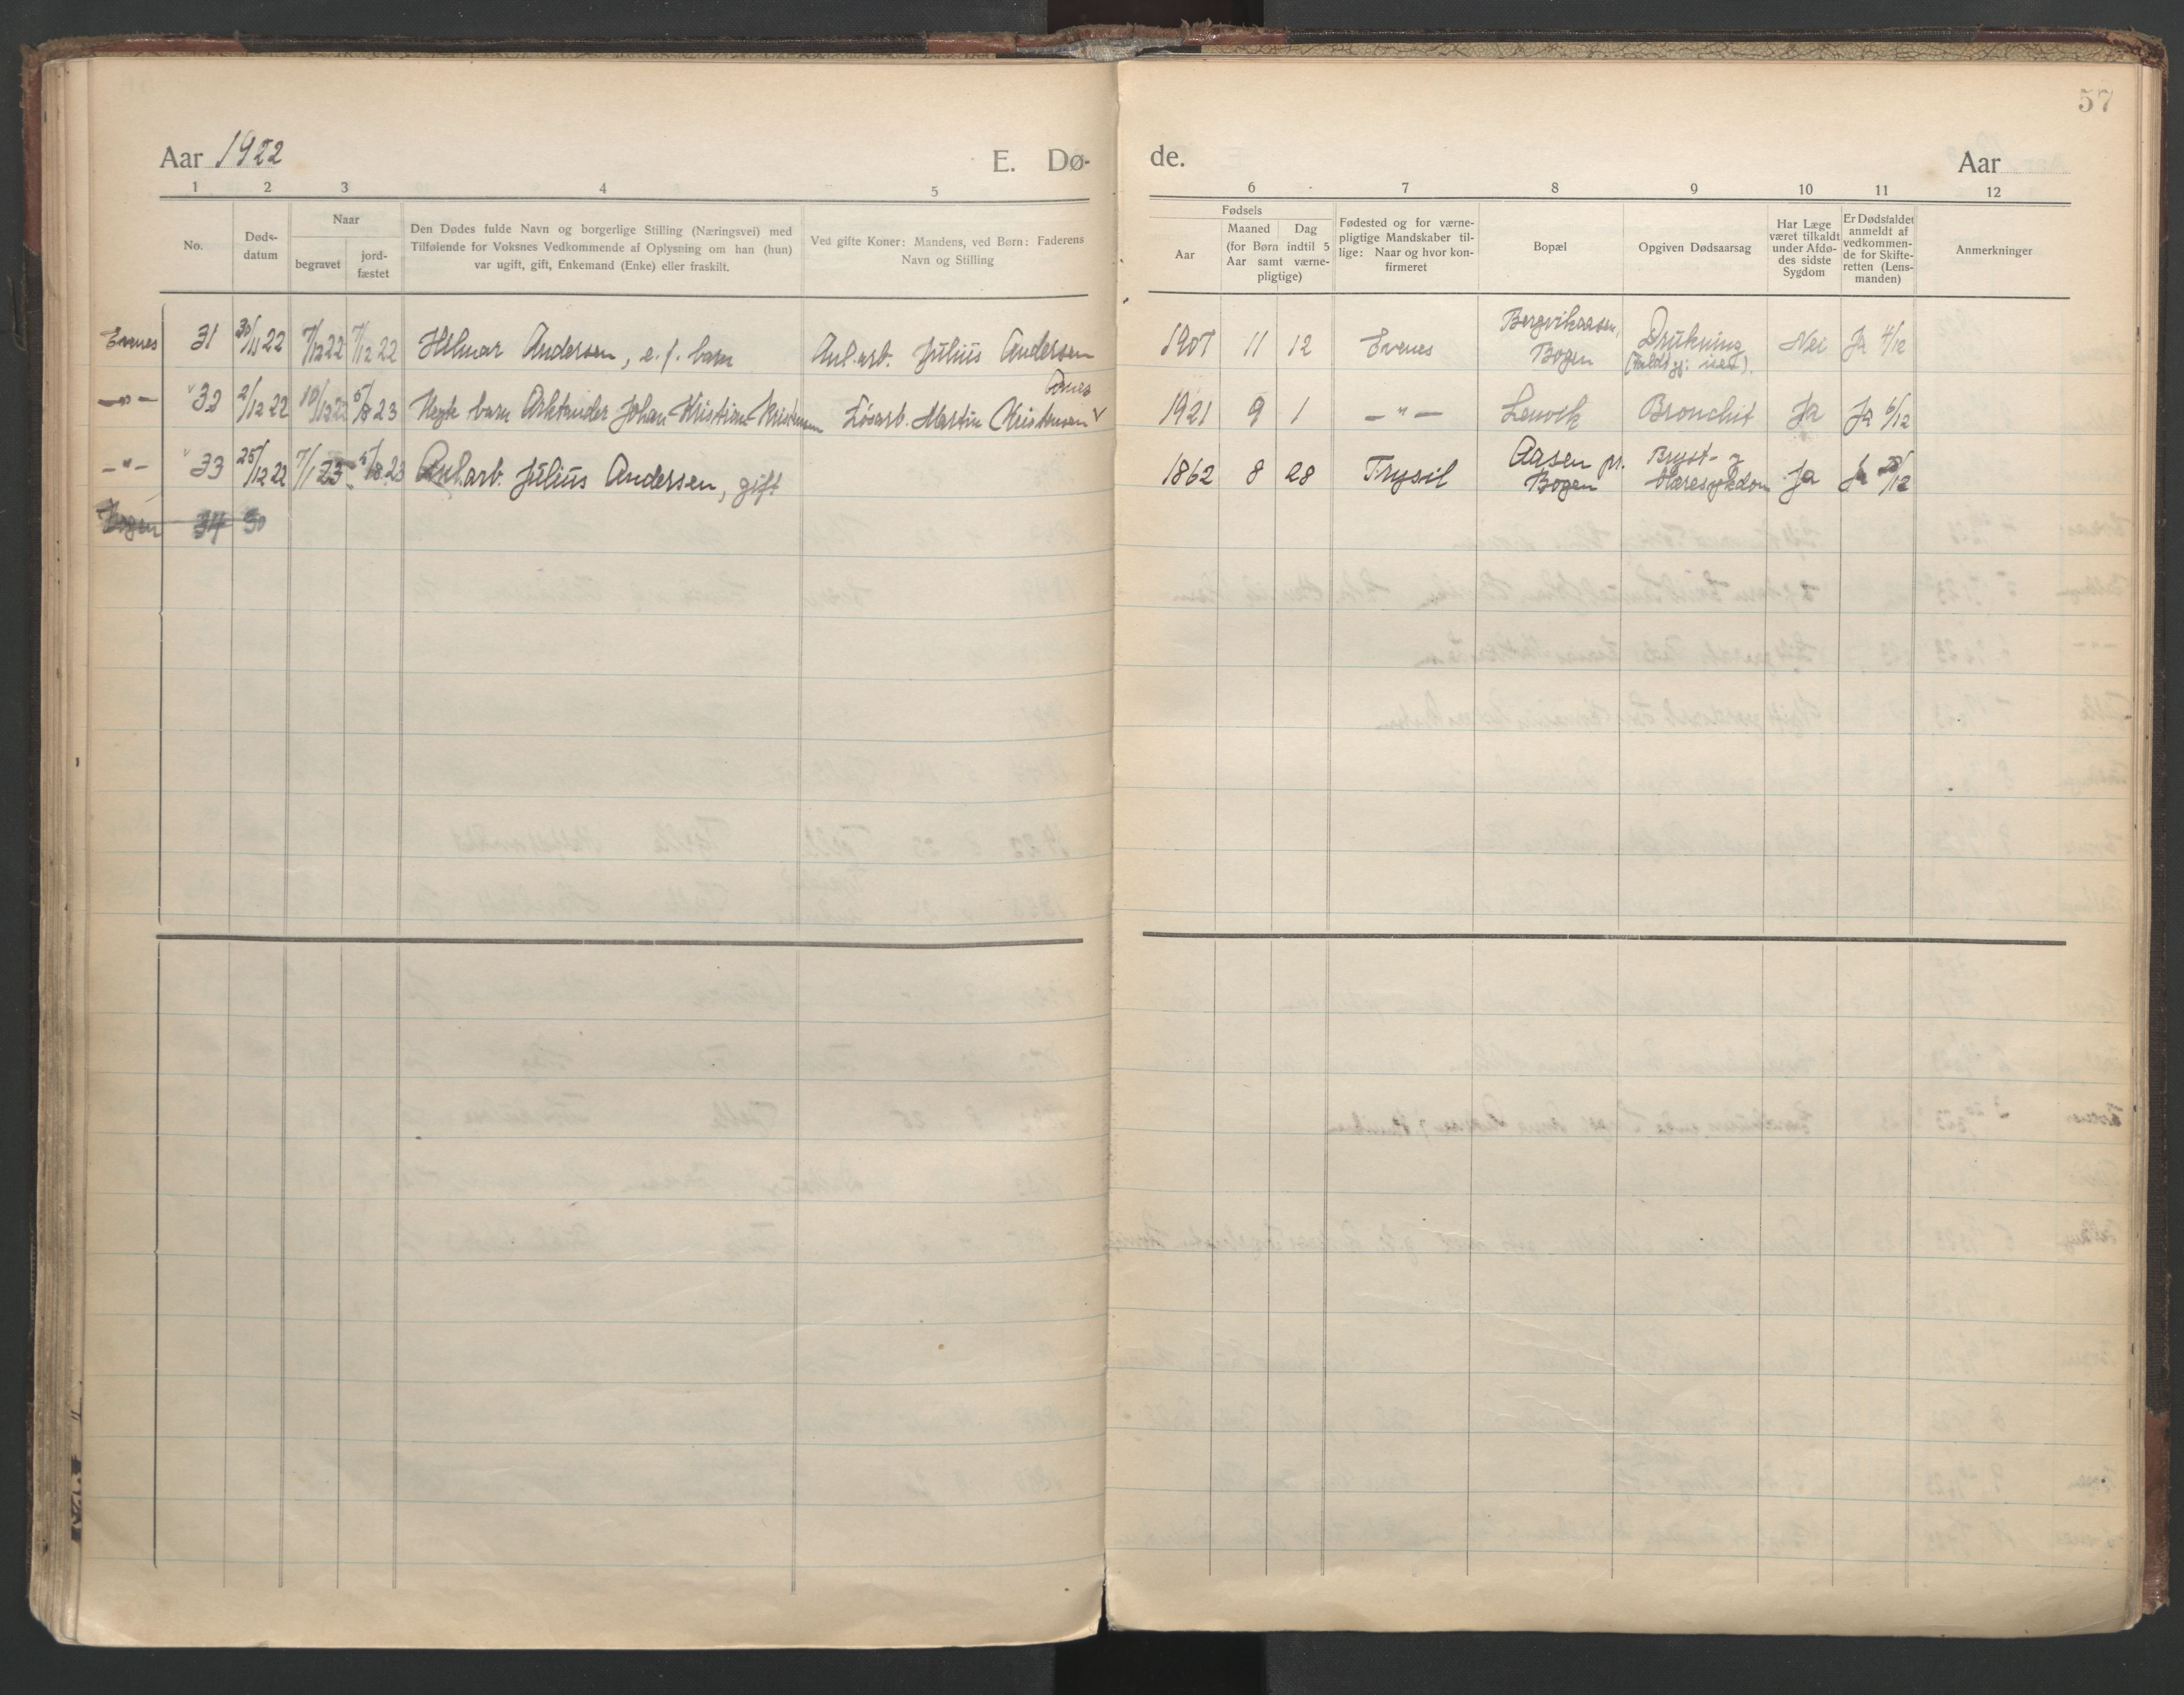 57
Aar 1922 E. Dø- de. Aar
1 2 3 4 5 6 7 8 9 10 11 12
No.
Døds-
datum
Naar
begravet
jord-
fæstet
Den Dødes fulde Navn og borgerlige Stilling (Næringsvei) med
Tilføiende for Voksnes Vedkommende af Oplysning om han (hun)
var ugift, gift, Enkemand (Enke) eller fraskilt.
Ved gifte Koner: Mandens, ved Børn: Faderens
Navn og Stilling
Fødsels
Aar
Maaned Dag
(for Børn indtil 5
Aar samt værne-
pligtige)
Fødested og for værne-
pligtige Mandskaber til-
lige: Naar og hvor kon-
firmeret
Bopæl
Opgiven Dødsaarsag
Har Læge
været tilkaldt
under Afdø-
des sidste
Sygdom
Er Dødsfaldet
anmeldt af
vedkommen-
de for Skifte-
retten (Lens-
manden)
Anmerkninger
Evenes 31 30/11 22 7/12 22 7/12 22 Hilmar Andersen, e.f. barn Anl.arb. Julius Andersen 1907 11 12 Evenes Bergvikaasen, Bogen Drukning Nei Ja 4/12
—"— 32 2/12 22 10/12 22 5/8 23 Uegte barn Arktander Johan Kristian Kristensen Løsarb. Martin Kristensen 1921 9 1 —"— Lenvik Bronchit Ja Ja 6/12
—"— 33 25/12 22 7/1 23 5/8 23 Anl.arb. Julius Andersen, gift 1862 8 28 Trysil Aasen pr. Bogen Bryst- og blæresykdom Ja Ja 28/12
Bogen 34 30